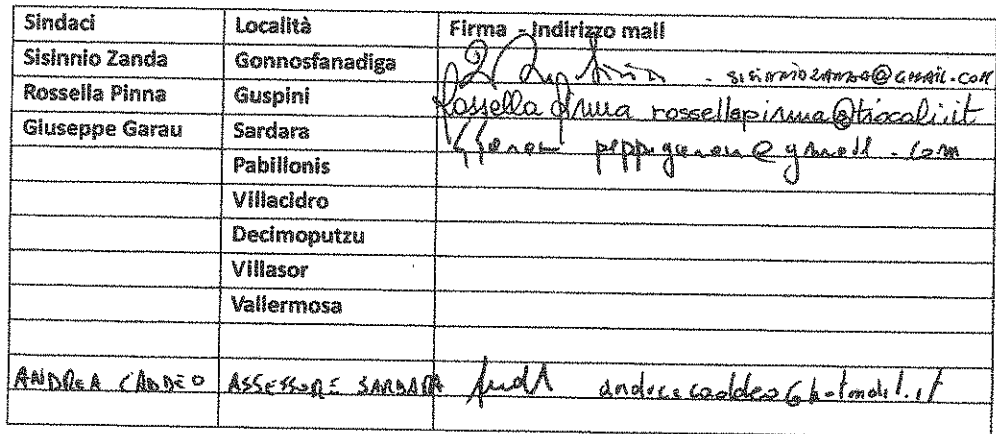 Sindaci Località Firma - indirizzo mail
Sisinnio Zanda Gonnosfanadiga sisinniozanda@gmail.com
Rossella Pinna Guspini Rossella Pinna rossellapinna@tiscali.it
Giuseppe Garau Sardara peppigarau@gmail.com
Pabillonis
Villacidro
Decimoputzu
Villasor
Vallermosa
ANDREA CADDEO ASSESSORE SARDARA andreacaddeo@hotmail.it